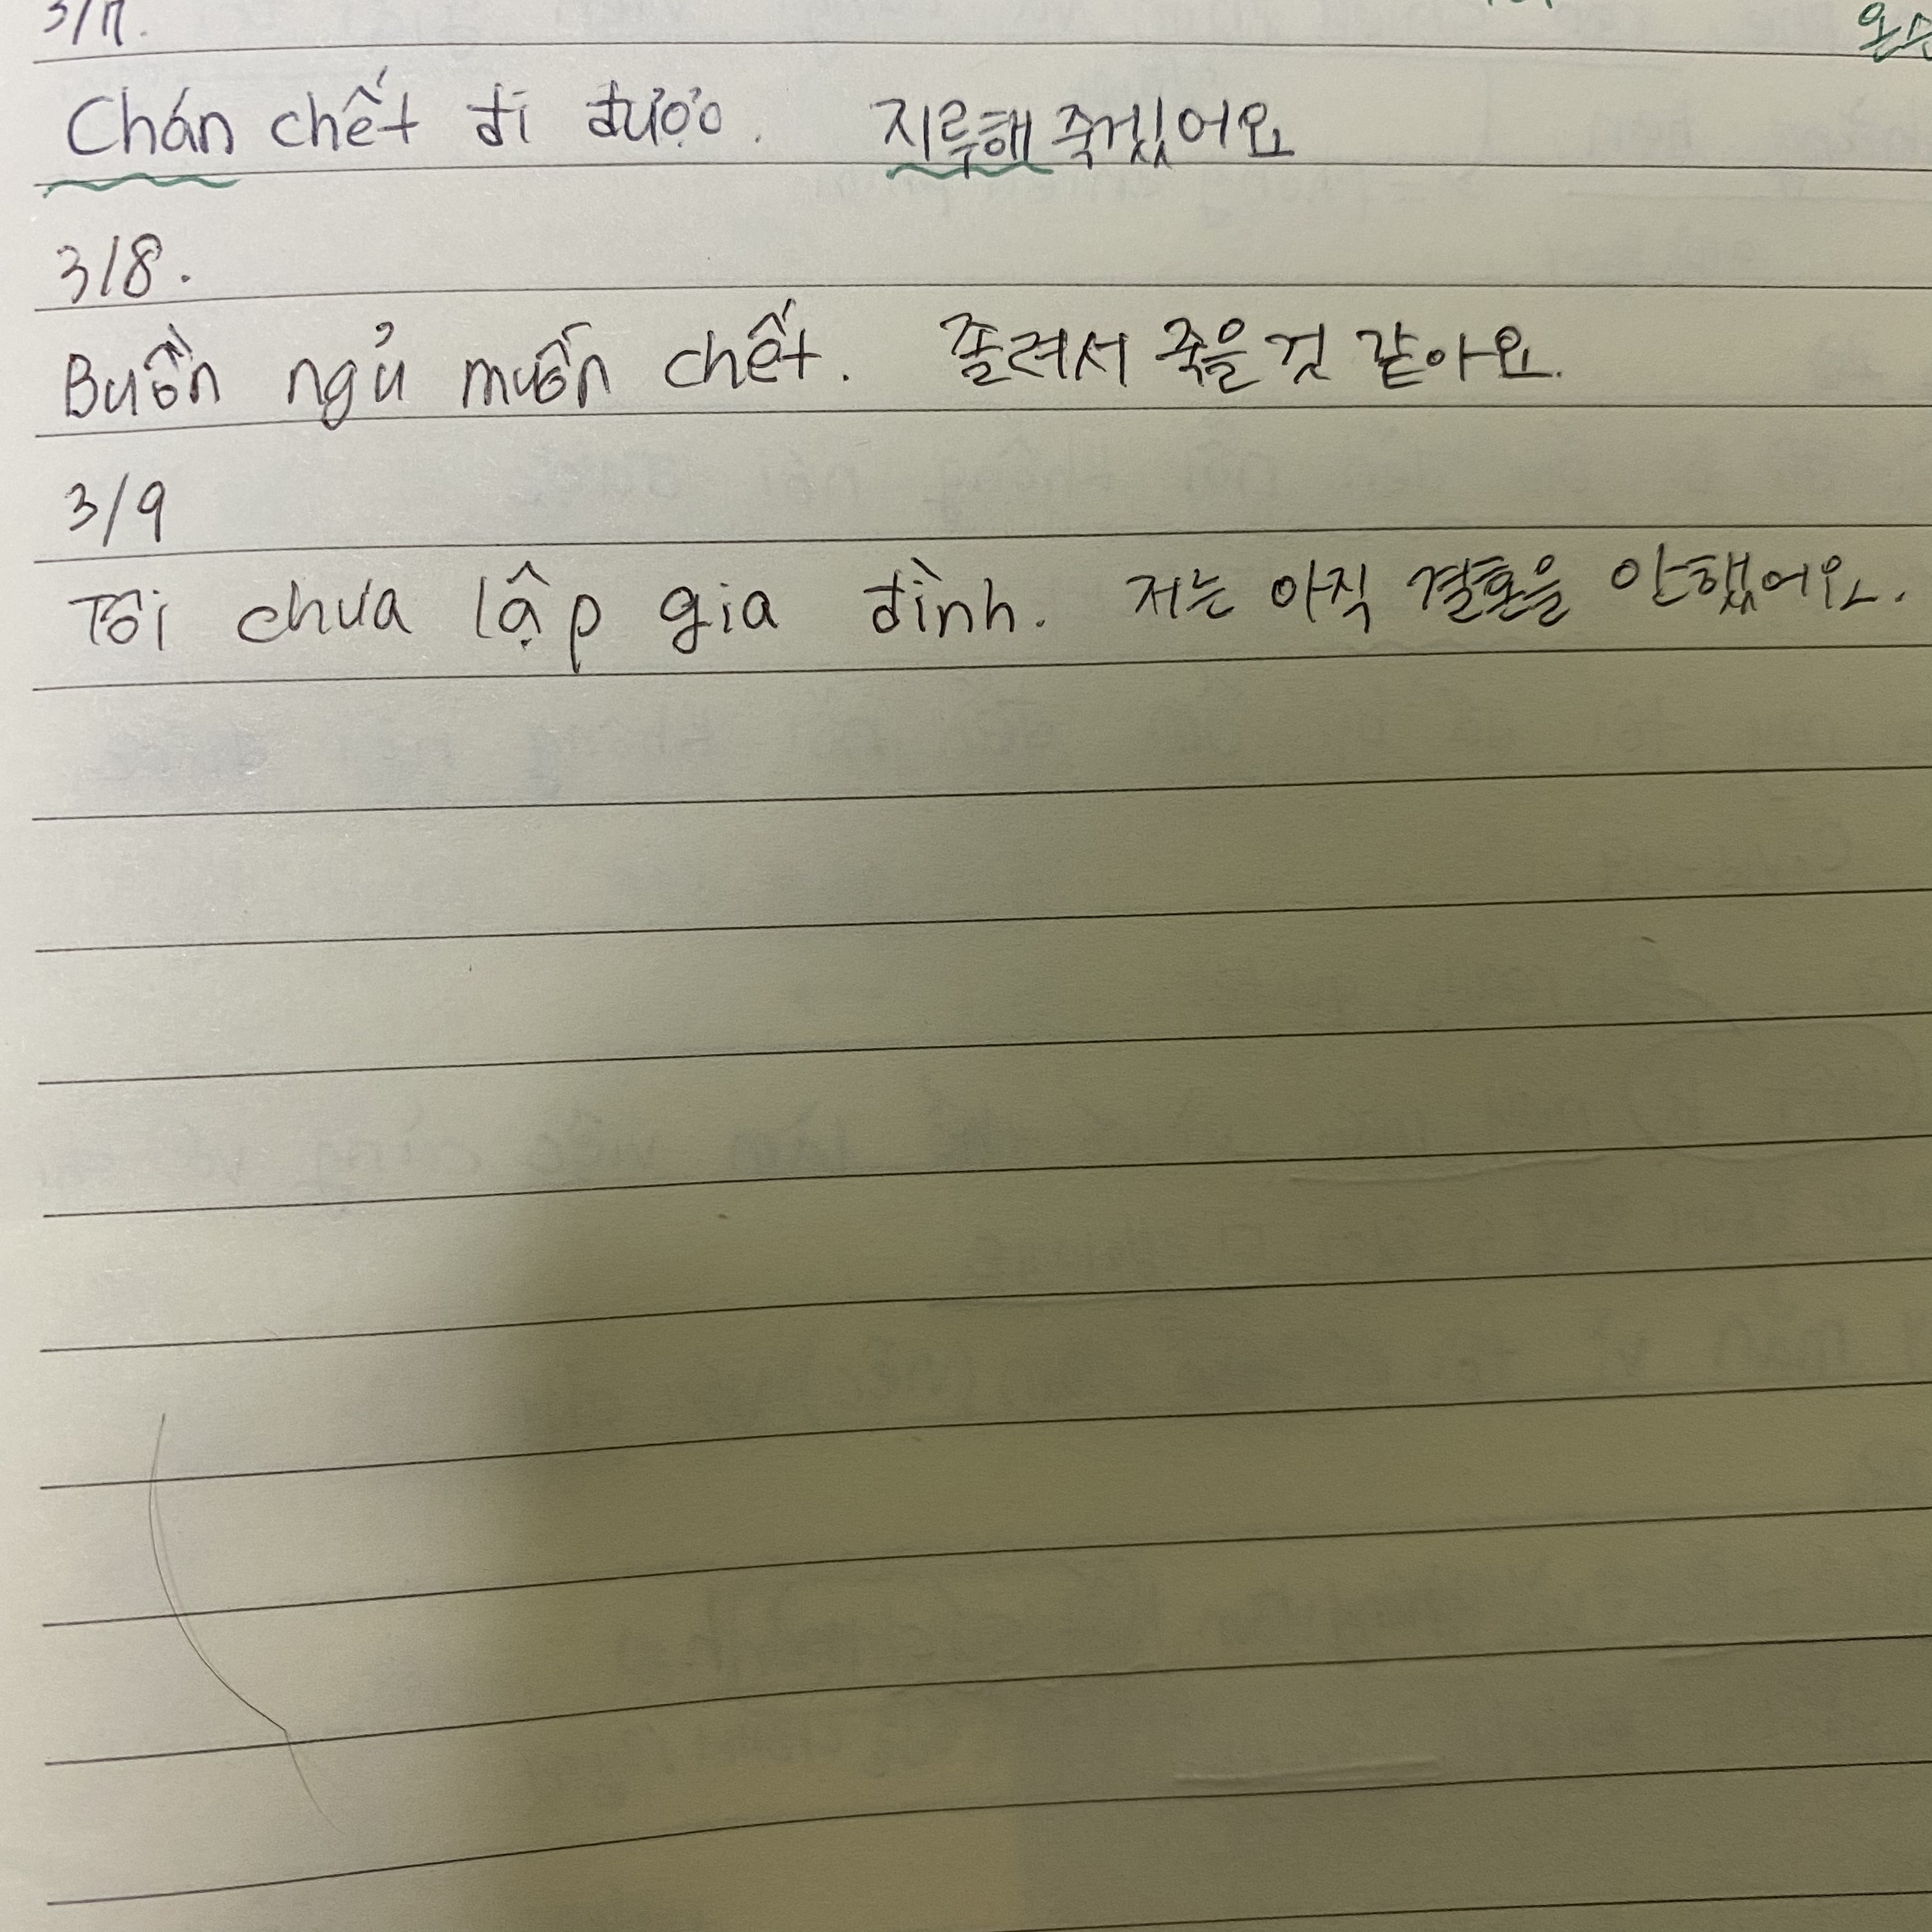 3/7.
Chán chết đi được. 지루해 죽겠어요
3/8.
Buồn ngủ muốn chết. 졸려서 죽을 것 같아요.
3/9
Tôi chưa lập gia đình. 저는 아직 결혼을 안했어요.